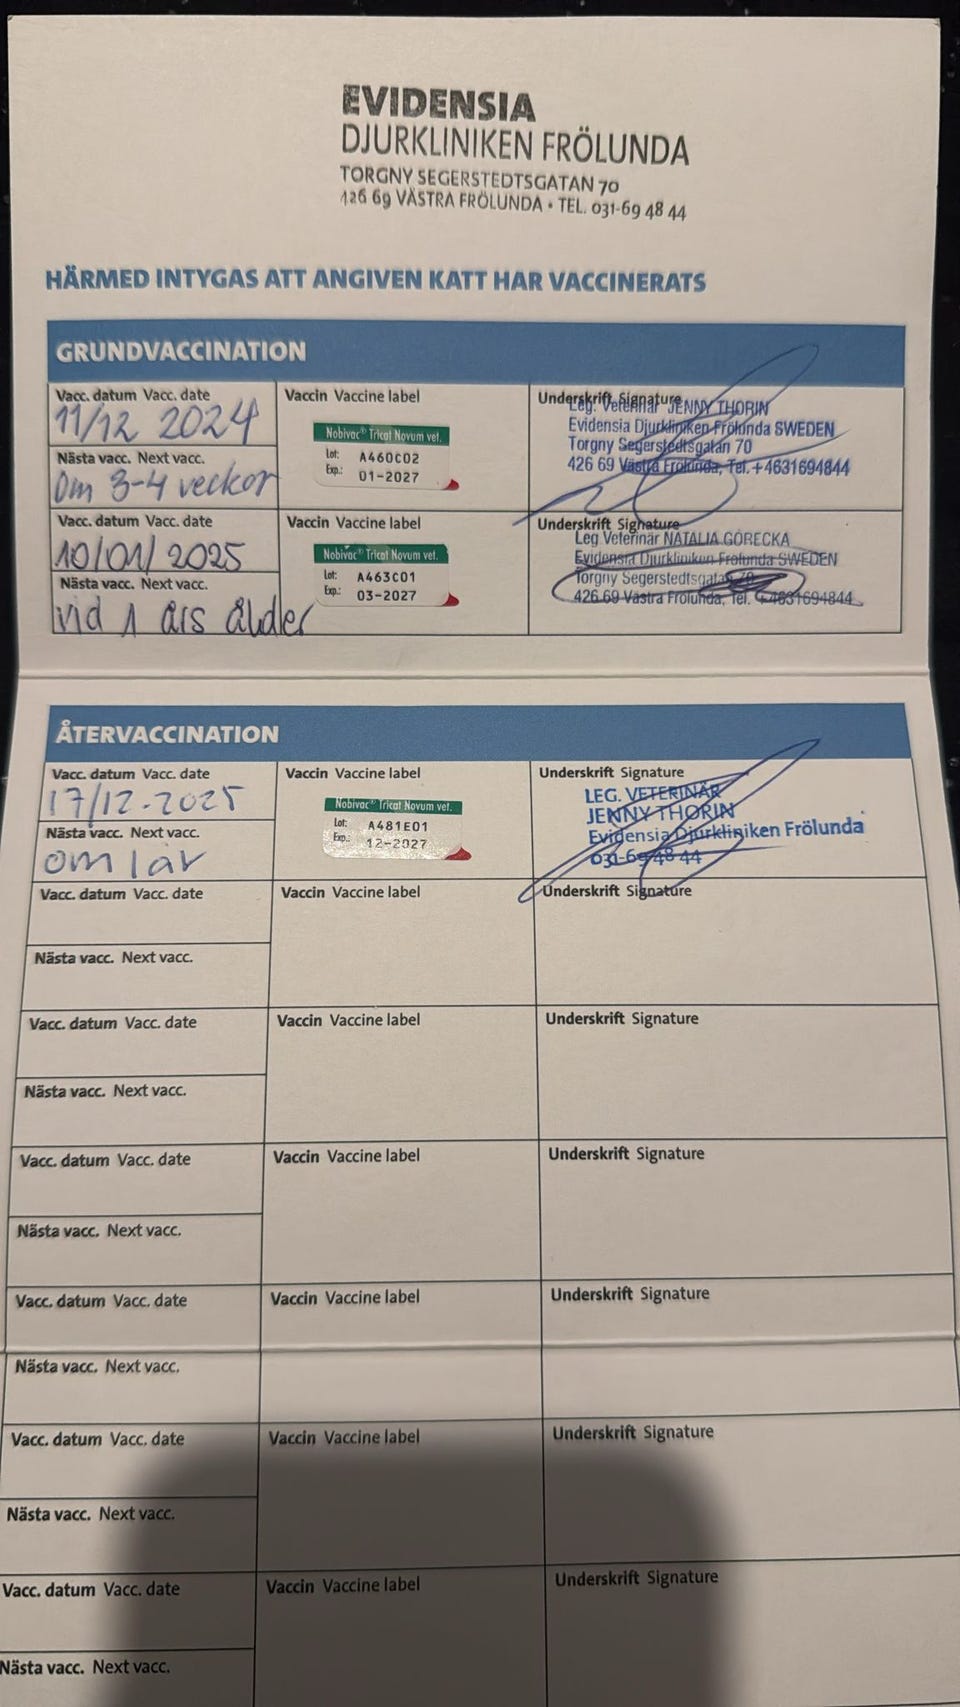 EVIDENSIA
DJURKLINIKEN FRÖLUNDA
TORGNY SEGERSTEDTSGATAN 70
426 69 VÄSTRA FRÖLUNDA • TEL. 031-69 48 44
HÄRMED INTYGAS ATT ANGIVEN KATT HAR VACCINERATS
GRUNDVACCINATION
Vacc. datum Vacc. date
11/12 2024
Nästa vacc. Next vacc.
Om 3-4 veckor
Vaccin Vaccine label
Nobivac® Tricat Novum vet.
Lot: A460C02
Exp.: 01-2027
Underskrift Signature
Leg. Veterinär JENNY THORIN
Evidensia Djurkliniken Frölunda SWEDEN
Torgny Segerstedtsgatan 70
426 69 Västra Frölunda, Tel. +4631694844
Vacc. datum Vacc. date
10/01/2025
Nästa vacc. Next vacc.
vid 1 års ålder
Vaccin Vaccine label
Nobivac® Tricat Novum vet.
Lot: A463C01
Exp.: 03-2027
Underskrift Signature
Leg Veterinär NATALIA GÓRECKA
Evidensia Djurkliniken Frölunda SWEDEN
Torgny Segerstedtsgatan 70
426 69 Västra Frölunda, Tel. +4631694844
ÅTERVACCINATION
Vacc. datum Vacc. date
17/12-2025
Nästa vacc. Next vacc.
om 1 år
Vaccin Vaccine label
Nobivac® Tricat Novum vet.
Lot: A481E01
Exp.: 12-2027
Underskrift Signature
LEG. VETERINÄR
JENNY THORIN
Evidensia Djurkliniken Frölunda
031-69 48 44
Vacc. datum Vacc. date
Nästa vacc. Next vacc.
Vaccin Vaccine label
Underskrift Signature
Vacc. datum Vacc. date
Nästa vacc. Next vacc.
Vaccin Vaccine label
Underskrift Signature
Vacc. datum Vacc. date
Nästa vacc. Next vacc.
Vaccin Vaccine label
Underskrift Signature
Vacc. datum Vacc. date
Nästa vacc. Next vacc.
Vaccin Vaccine label
Underskrift Signature
Vacc. datum Vacc. date
Nästa vacc. Next vacc.
Vaccin Vaccine label
Underskrift Signature
Vacc. datum Vacc. date
Nästa vacc. Next vacc.
Vaccin Vaccine label
Underskrift Signature